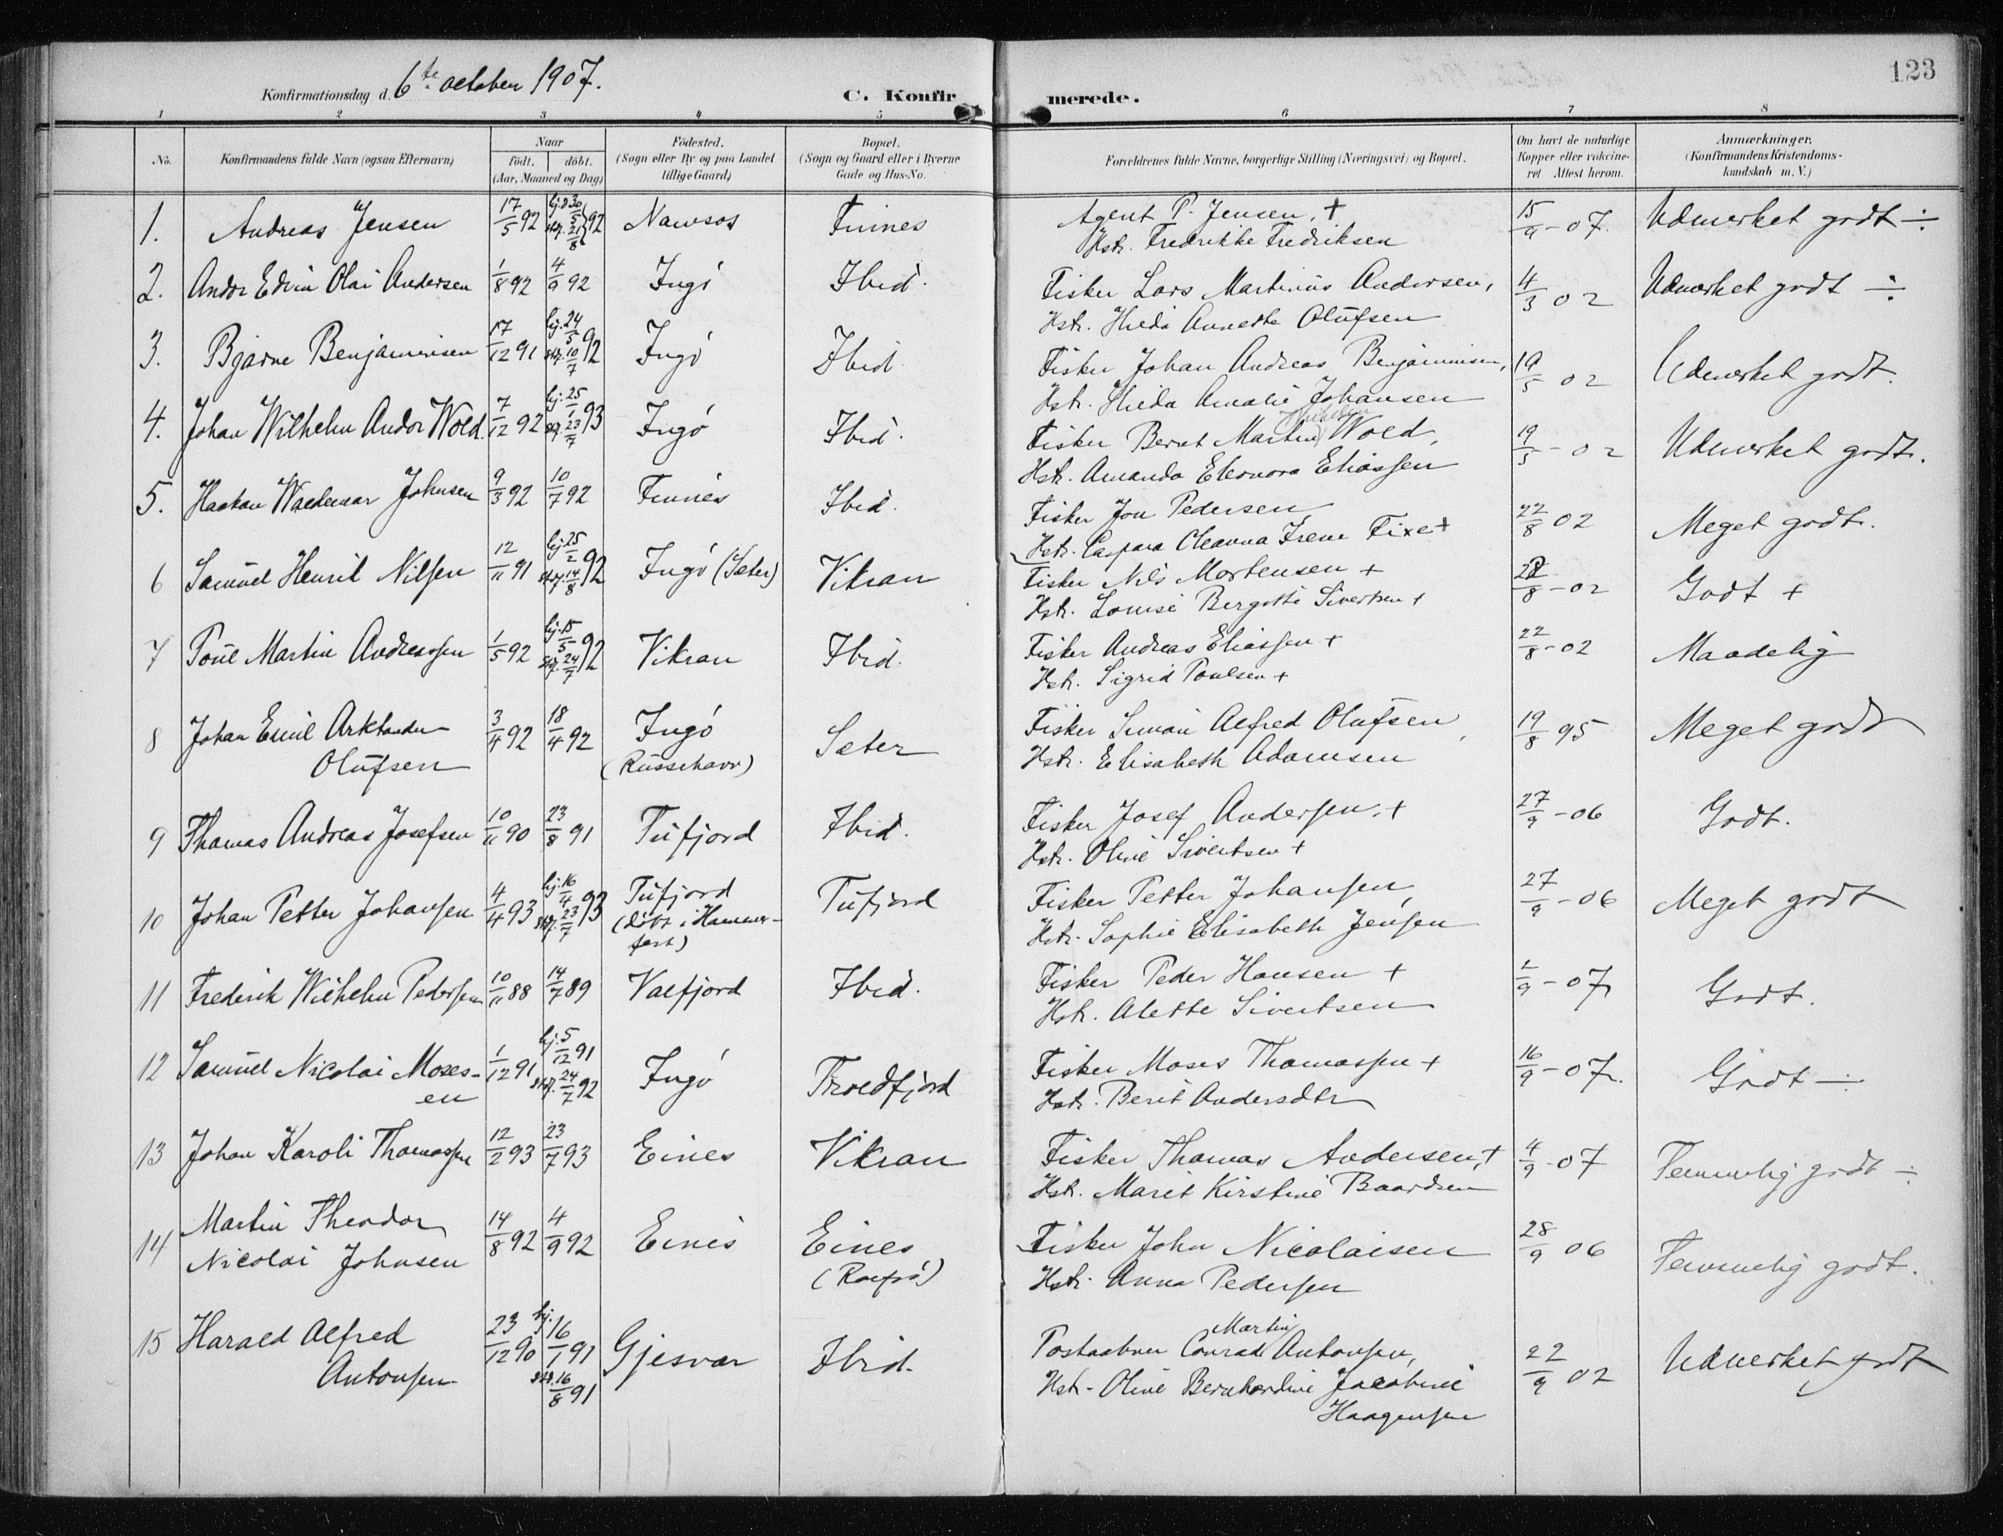 123
Konfirmationsdag d. 6te october 1907.
C. Konfirmerede.
1 2 3 4 5 6 7 8
No. Konfirmandens fulde Navn (ogsaa Efternavn) Naar födt. döbt. (Aar, Maaned og Dag) Födested. (Sogn eller By og paa Landet tillige Gaard) Bopæl. (Sogn og Gaard eller i Byerne Gade og Hus-No. Forældrenes fulde Navne, borgerlige Stilling (Næringsvei) og Bopæl. Om havt de naturlige Kopper eller vakcineret Attest herom. Anmærkninger. (Konfirmandens Kristendomskundskab m. V.)
1. Andreas Jensen 17/5 92 hj. 30/5 stdf. 21/8 92 Namsos Finnes Agent P. Jensen, + 15/9-07. Udmerket godt ÷
Hstr. Fredrikke Fredriksen
2. Andor Edvin Olai Andersen 1/8 92 4/9 92 Ingö Ibid. Fisker Lars Martinus Andersen, 4/3 02 Udmerket godt ÷
Hstr. Hilda Annette Olufsen
3. Bjarne Benjaminsen 17/12 91 hj. 24/5 stdf. 10/7 92 Ingö Ibid. Fisker Johan Andreas Benjaminsen, 19/5 02 Udmerket godt.
Hstr. Hilda Amalie Johansen
4. Johan Wilhelm Andor Wold. 7/12 92 hj. 25/1 stdf. 23/7 93 Ingö Ibid. Fisker Bernt Martin Wold, 19/5-02 Udmerket godt.
Hstr. Amanda Eleonora Eliassen
5. Haakon Waldemar Johnsen 9/3 92 10/7 92 Finnes Ibid. Fisker Jon Pedersen 22/8 02 Meget godt.
Hstr. Caspara Oleanna Irene Fixe +
6 Samuel Henrik Nilsen 12/11 91 hj. 25/2 stdf. 14/8 92 Ingö (Sæter) Vikran Fisker Nils Mortensen + 22/8-02 Godt +
Hstr. Louise Bergitte Sivertsen +
7 Poul Martin Andreassen 1/5 92 hj. 15/5 stdf. 24/7 92 Vikran Ibid. Fisker Andreas Eliassen + 22/8-02 Maadelig
Hstr. Sigrid Poulsen +
8 Johan Emil Arktander 3/4 92 18/4 92 Ingö Sæter Fisker Simon Alfred Olufsen, 19/8 95 Meget godt
Olufsen (Russehavn) Hstr. Elisabeth Adamsen
9 Thomas Andreas Josefsen 10/11 90 23/8 91 Tufjord Ibid. Fisker Josef Andersen, + 27/9-06 Godt.
Hstr. Oline Sivertsen +
10 Johan Petter Johansen 4/4 93 hj. 16/4 stdf. 23/7 93 Tufjord Tufjord Fisker Petter Johansen, 27/9-06 Meget godt
(döbt i Hammerfest) Hstr. Sophie Elisabeth Jensen
11 Frederik Wilhelm Pedersen 10/11 88 14/7 89 Valfjord Ibid. Fisker Peder Hansen + 2/9-07 Godt.
Hstr. Alette Sivertsen
12 Samuel Nicolai Moses- 1/12 91 hj. 5/12 91 Ingö Troldfjord Fisker Moses Thomassen + 16/9-07. Godt ÷
en stdf. 24/7 92 Hstr. Berit Andersdtr
13 Johan Karoli Thomassen 12/2 93 23/7 93 Eines Vikran Fisker Thomas Andersen, + 4/9-07 Temmelig godt ÷
Hstr. Maret Kirstine Baardsen
14 Martin Theodor 14/8 92 4/9 92 Eines Eines Fisker John Nicolaisen 28/9 06 Temmelig godt.
Nicolai Johnsen (Rolfsö) Hstr. Anna Pedersen
15 Harald Alfred 23/12 90 hj. 16/1 91 Gjesvær Ibid. Postaabner Conrad Martin Antonsen, 22/9 02 Udmerket godt
Antonsen stdf. 16/8 91 Hstr. Oline Bernhardine Jacobine
Haagensen